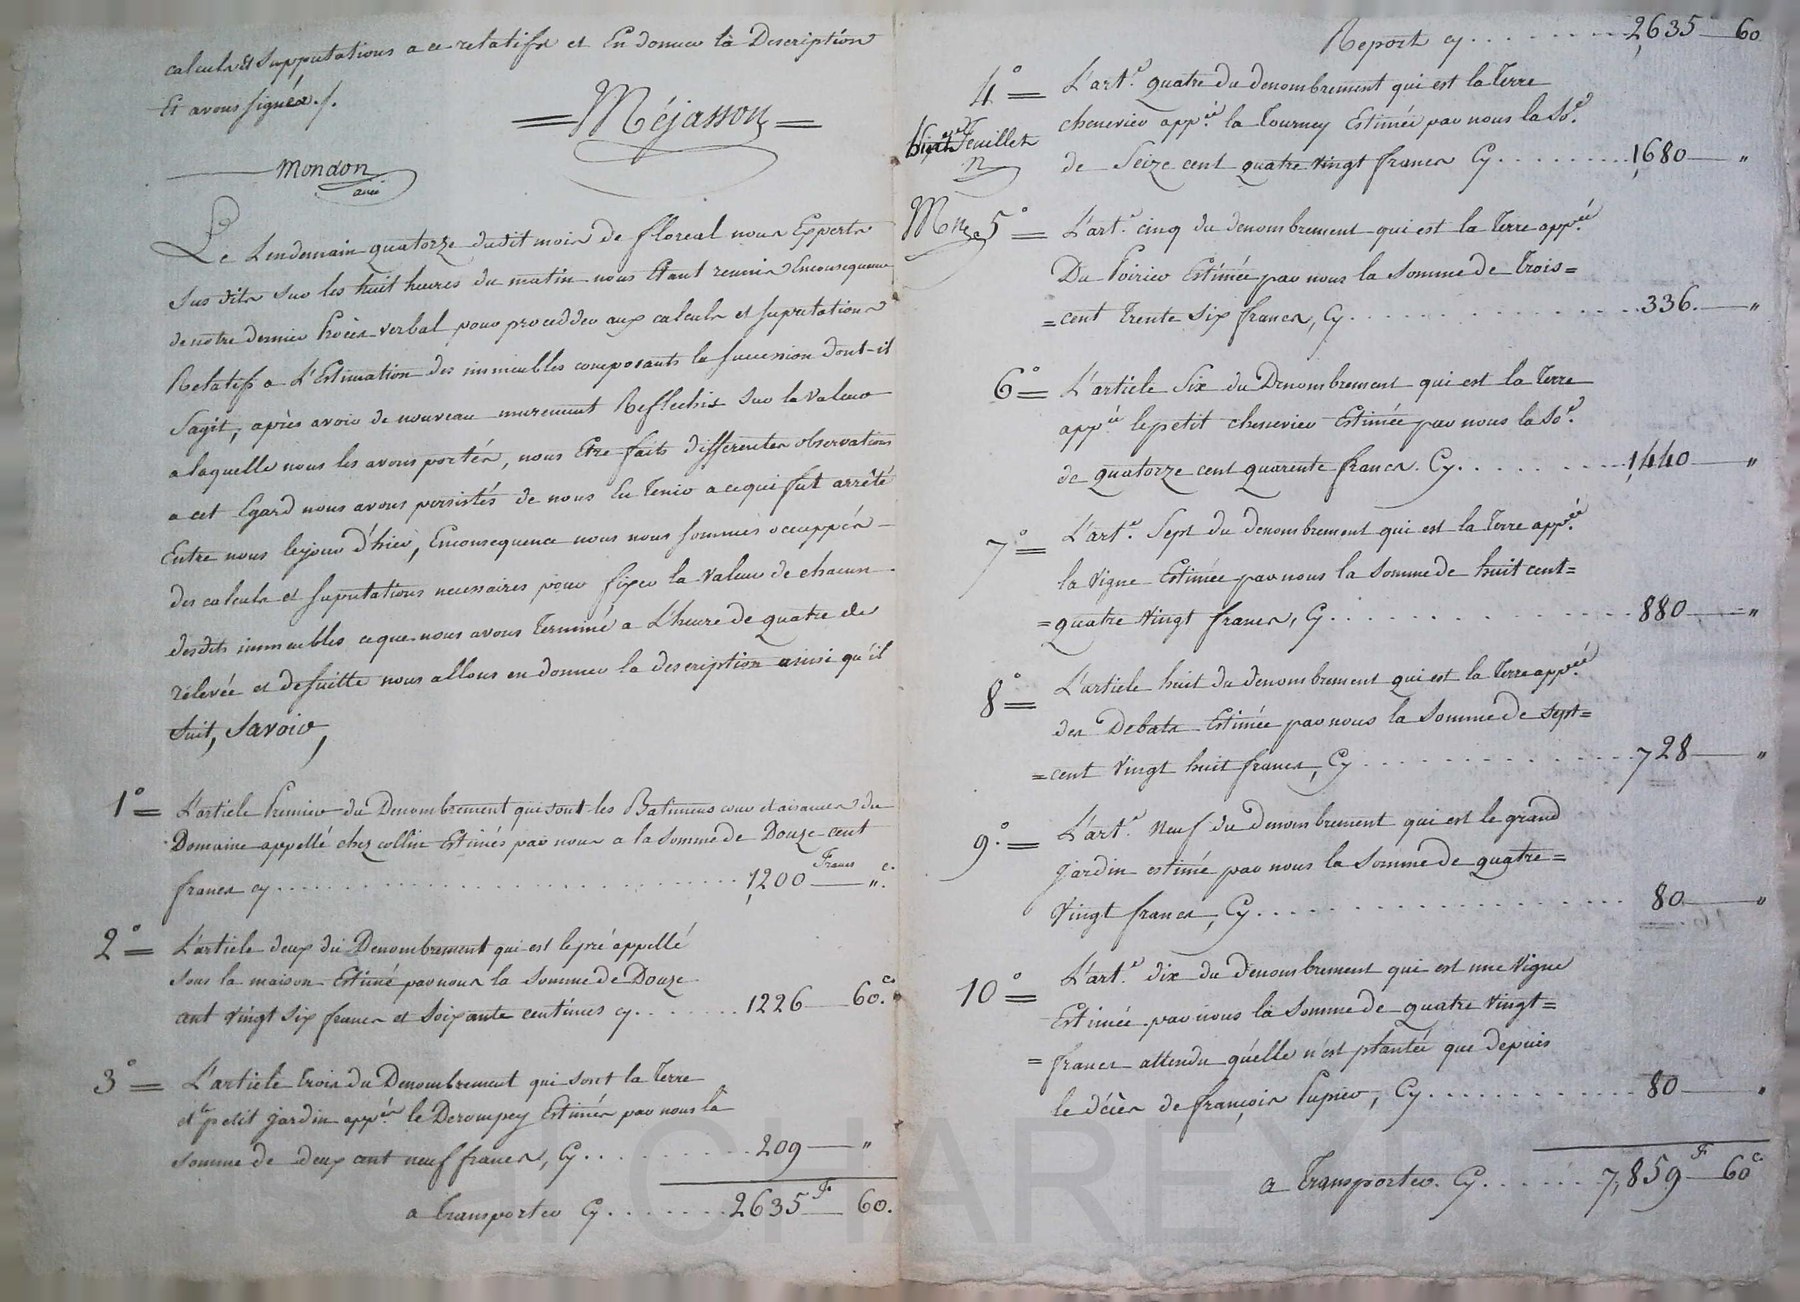 calculs et Supputations a ce relatifs et En donner la Description
Et avons signés ./.
Méjasson
Mondon
ainé
Le Lendemain quatorze dudit mois de floreal nous Experts
Sus dits sur les huit heures du matin nous Etant reunis Enconsequence
de notre dernier Procès verbal pour procedder aux calculs et suputations
Relatifs a L'Estimation des immeubles composants la succession dont-il
Sagit, après avoir de nouveau murement Reflechis sur la valeur
a laquelle nous les avons portés, nous Etre faits differentes observations
a cet Egard nous avons persistés de nous En Tenir a ce qui fut arrêté
Entre nous le jour d'hier, Enconsequence nous nous sommes occuppés
des calculs et suputations necessaires pour fixer la valeur de chacun
desdits immeubles ce que nous avons Terminé a L'heure de quatre de
rélevée et desuitte nous allons en donner la description ainsi qu'il
Suit, Savoir,
1° = L'article Premier du Denombrement qui sont les Batiments cour et aisances du
Domaine appellé chez collin Estimés par nous a la somme de Douze cent
francs cy . . . . . . . . . . 1,200 Francs " c.
2° = L'article deux du Denombrement qui est le pré appellé
sous la maison Estimé par nous la Somme de Douze
cent vingt six francs et soixante centimes cy . . . . . . . 1226 — 60. c.
3° = L'article Trois du Denombrement qui sont la Terre
et le petit jardin app.és le Derompey Estimés par nous la
somme de deux cent neuf francs, Cy . . . . . . . . . 209 — "
a Transporter Cy . . . . . . . 2635 F. — 60.
Report cy . . . . . . . . 2,635 — 60
4° = L'art.e quatre du denombrement qui est la Terre
chenevier app.ée la Tourney Estimée par nous la So.e
de Seize cent quatre vingt francs Cy . . . . . . . . 1,680 — "
Feuillet
5° = L'art.e cinq du denombrement qui est la Terre app.ée
Du Poirier Estimée par nous la somme de Trois=
=cent Trente Six francs, Cy . . . . . . . . . . . . . 336. — "
6° = L'article Six du Denombrement qui est la Terre
app.ée le petit chenevier Estimée par nous la So.e
de quatorze cent quarente francs. Cy . . . . . . . . 1,440 — "
7° = L'art.e Sept du denombrement qui est la Terre app.ée
la Vigne Estimée par nous la Somme de huit cent=
=quatre Vingt francs, Cy . . . . . . . . . . . . . 880 — "
8° = L'article huit du denombrement qui est la Terre app.ée
des Debats Estimée par nous la Somme de sept=
=cent Vingt huit francs, Cy . . . . . . . . . . . . . 728 — "
9° = L'art.e Neuf du denombrement qui est le grand
jardin estimé par nous la Somme de quatre=
Vingt francs, Cy . . . . . . . . . . . . . . . . 80 — "
10° = L'art.e dix du denombrement qui est une Vigne
Estimée par nous la Somme de quatre Vingt=
=francs attendu quélle n'est plantée que depuis
le décès de françois Pupier, Cy . . . . . . . . . . . 80 — "
a Transporter. Cy . . . . . . 7,859 F. — 60 c.
CHAREYRON